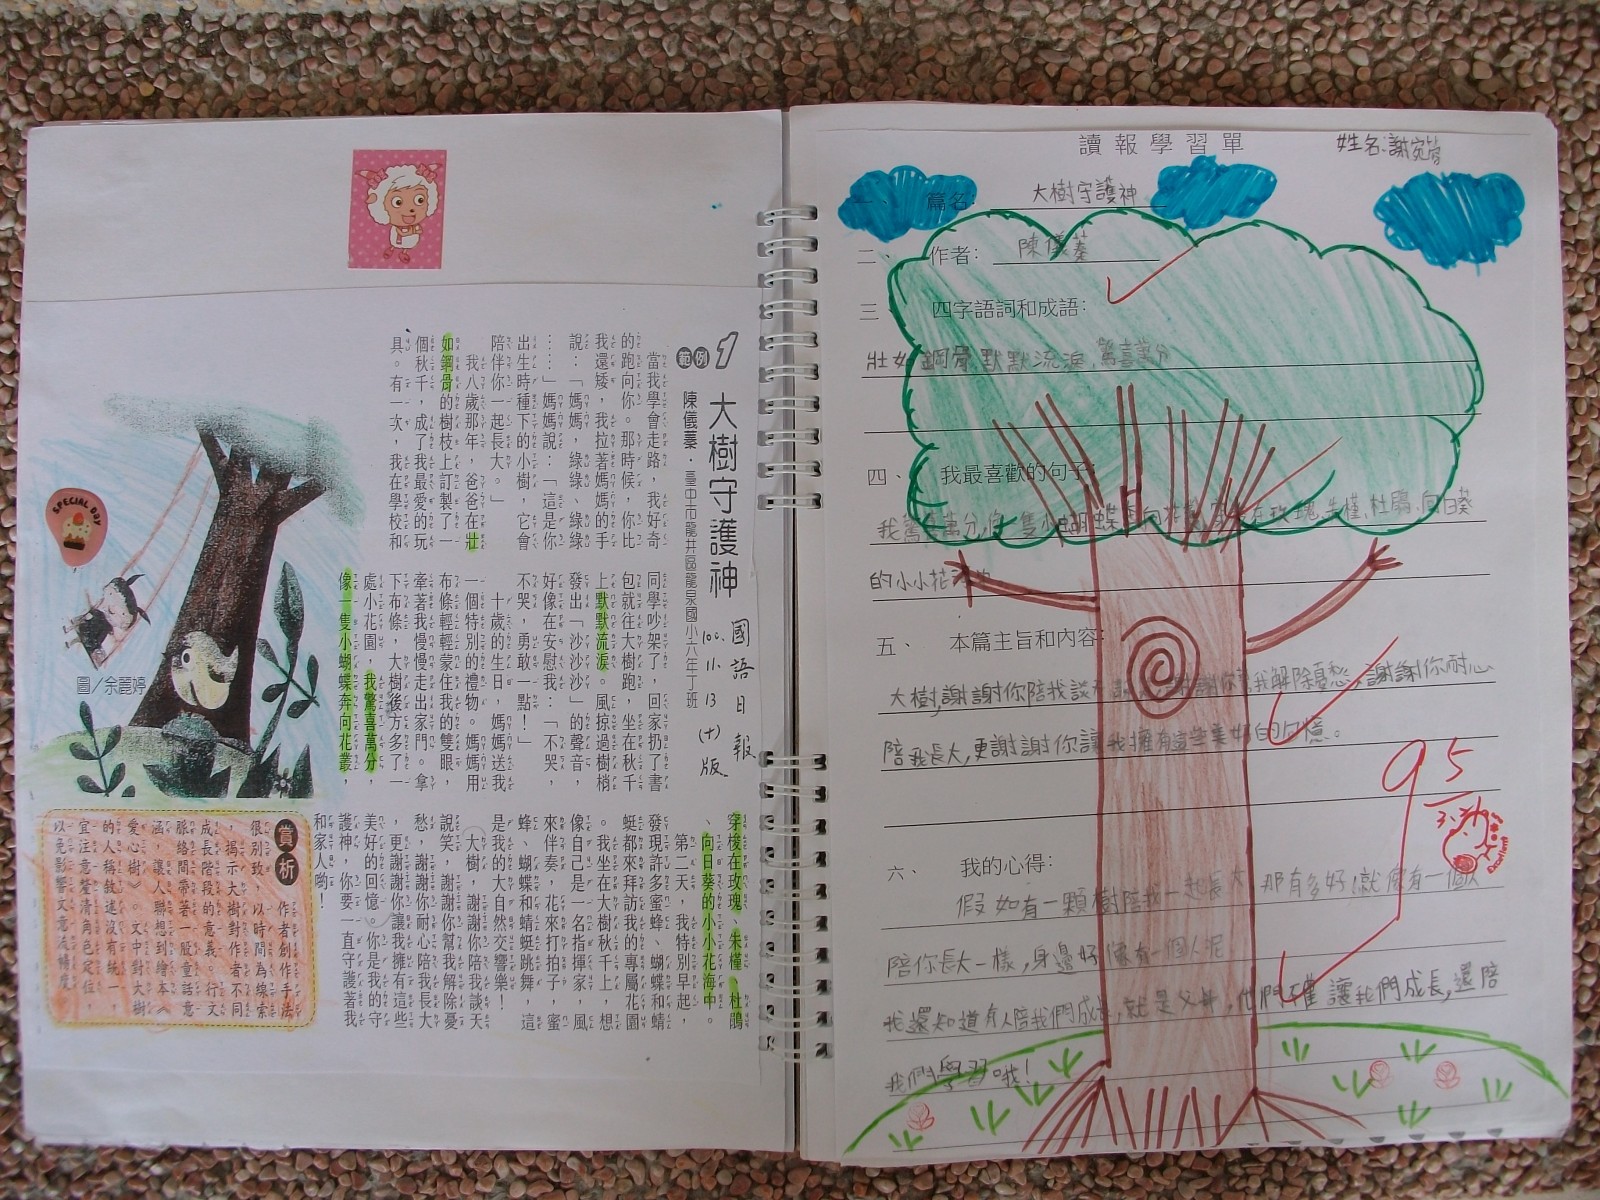 範例1
大樹守護神
陳儀蓁・臺中市龍井區龍泉國小六年丁班
國語日報
100.11.13(十)版
當我學會走路，我好奇
的跑向你。那時候，你比
我還矮，我拉著媽媽的手
說：「媽媽，綠綠、綠綠
……」媽媽說：「這是你
出生時種下的小樹，它會
陪伴你一起長大。」
我八歲那年，爸爸在壯
如鋼骨的樹枝上訂製了一
個秋千，成了我最愛的玩
具。有一次，我在學校和
同學吵架了，回家扔了書
包就往大樹跑，坐在秋千
上默默流淚。風掠過樹梢
發出「沙沙沙」的聲音，
好像在安慰我：「不哭，
不哭，勇敢一點！」
十歲的生日，媽媽送我
一個特別的禮物。媽媽用
布條輕輕蒙住我的雙眼，
牽著我慢慢走出家門。拿
下布條，大樹後方多了一
處小花園，我驚喜萬分，
像一隻小蝴蝶奔向花叢，
穿梭在玫瑰、朱槿、杜鵑
、向日葵的小小花海中。
第二天，我特別早起，
發現許多蜜蜂、蝴蝶和蜻
蜓都來拜訪我的專屬花園
。我坐在大樹秋千上，想
像自己是一名指揮家，風
來伴奏，花來打拍子，蜜
蜂、蝴蝶和蜻蜓跳舞，這
是我的大自然交響樂！
大樹，謝謝你陪我談天
說笑，謝謝你幫我解除憂
愁，謝謝你耐心陪我長大
，更謝謝你讓我擁有這些
美好的回憶。你是我的守
護神，你要一直守護著我
和家人喲！
SPECIAL DAY
圖／余麗婷
賞析
作者創作手法
很別致，以時間為線索
，揭示大樹對作者不同
成長階段的意義。行文
脈絡間帶著一股童話意
涵，讓人聯想到繪本《
愛心樹》。文中對大樹
的人稱敘述沒有統一，
宜注意釐清角色定位，
以免影響文意流暢度。
讀報學習單
姓名:謝宛
一、篇名: 大樹守護神
二、作者: 陳儀蓁
三、四字語詞和成語:
壯如鋼骨,默默流淚,驚喜萬分
四、我最喜歡的句子:
我驚喜萬分,像一隻小蝴蝶奔向花叢,穿梭在玫瑰,朱槿,杜鵑,向日葵
的小小花海中
五、本篇主旨和內容:
大樹,謝謝你陪我談天說笑,謝謝你幫我解除憂愁,謝謝你耐心
陪我長大,更謝謝你讓我擁有這些美好的回憶。
95
Excellent
六、我的心得:
假如有一顆樹陪我一起長大,那有多好,就像有一個人
陪你長大一樣,身邊好像有一個人呢
我還知道有人陪我們成長,就是父母,他們不僅讓我們成長,還陪
我們學習哦!